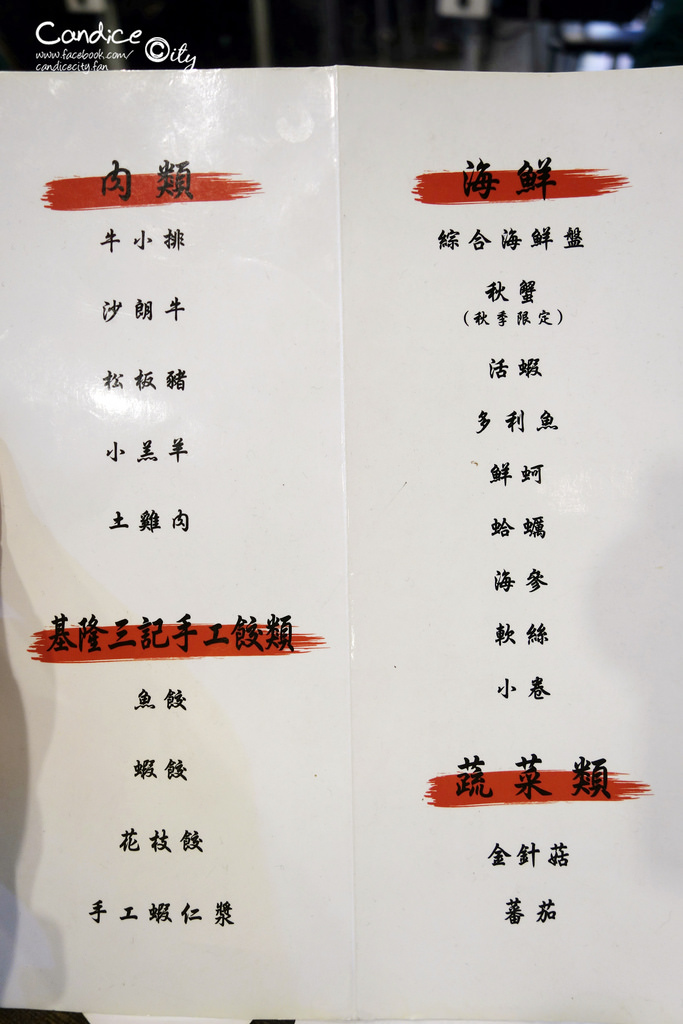 Candice
©ity
www.facebook.com/
candicecity.fan
肉類
牛小排
沙朗牛
松板豬
小羔羊
土雞肉
基隆三記手工餃類
魚餃
蝦餃
花枝餃
手工蝦仁漿
海鮮
綜合海鮮盤
秋蟹
(秋季限定)
活蝦
多利魚
鮮蚵
蛤蠣
海參
軟絲
小卷
蔬菜類
金針菇
蕃茄